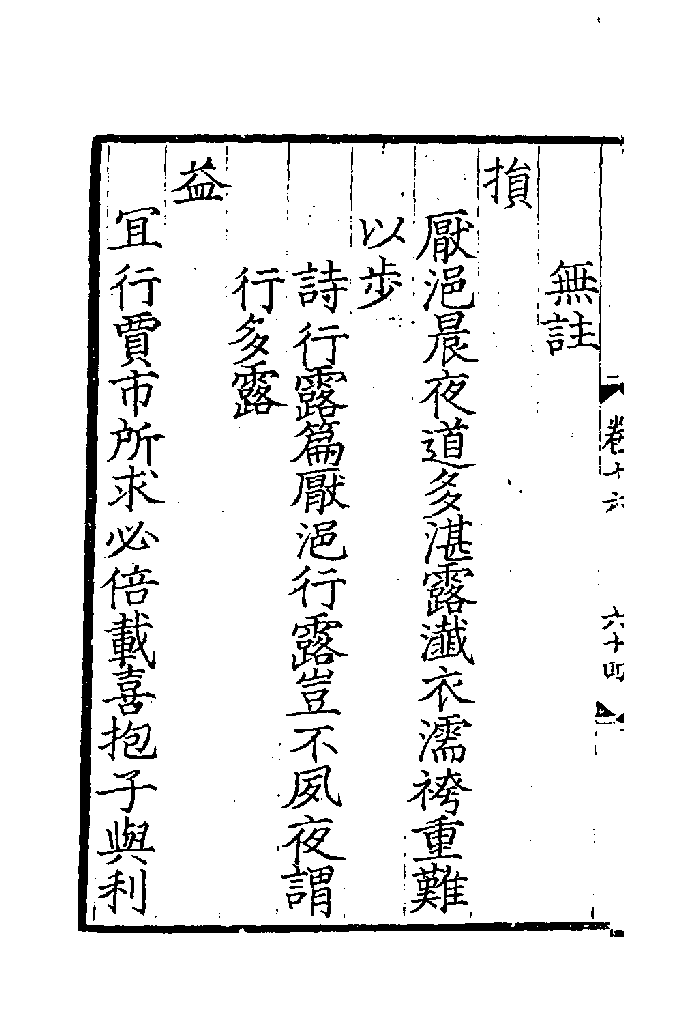 無註
損
厭浥晨夜道多湛露瀸衣濡袴重難
以步
詩行露篇厭浥行露豈不夙夜謂
行多露
益
宜行賈市所求必倍載喜抱子與利
卷十六
六十四